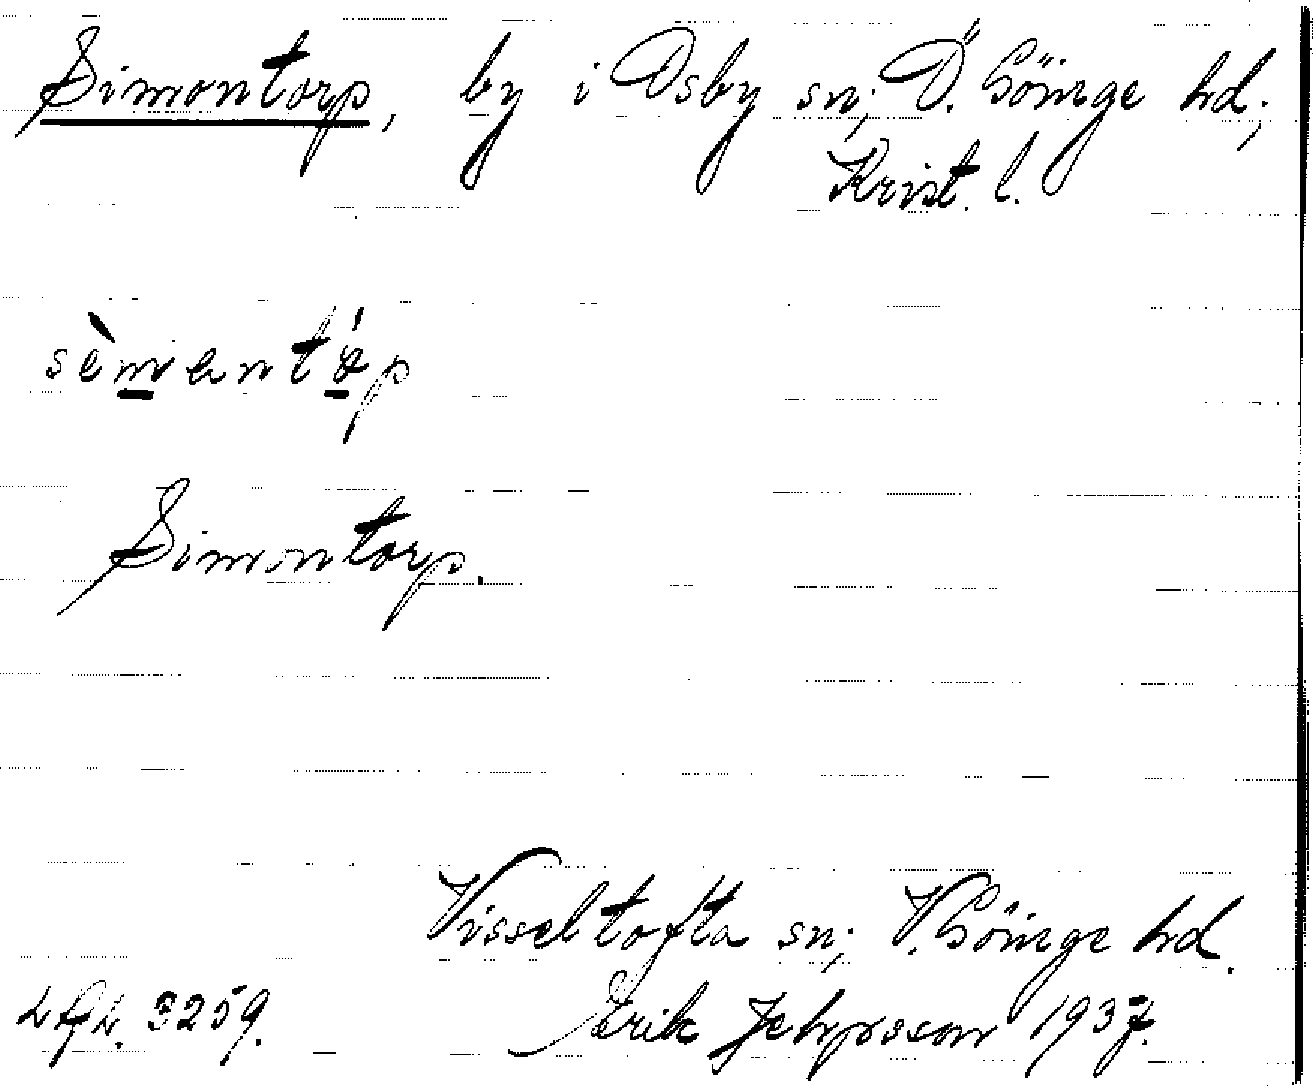 Simontorp, by i Osby sn; Ö. Göinge hd;
Krist. l.
Simontorp.
Visseltofta sn; V. Göinge hd.
3259. Erik Jehpsson 1937.